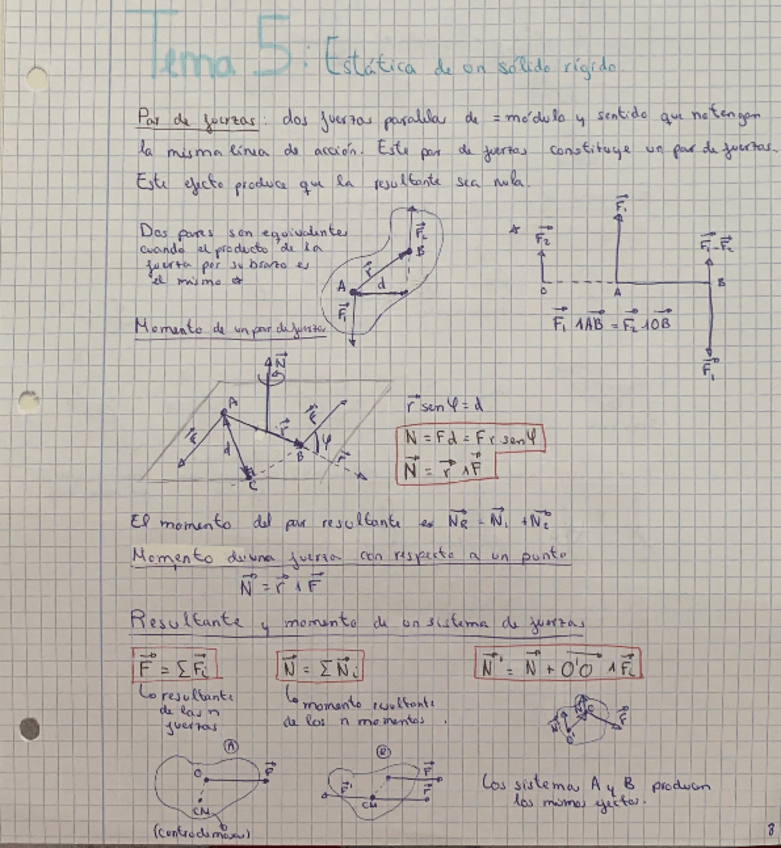 Tema 5: Estática de un sólido rígido
Par de fuerzas: dos fuerzas paralela de = módulo y sentido que no tengan
la misma línea de acción. Este par de fuerzas constituye un par de fuerzas.
Este efecto produce que la resultante sea nula.
Dos pares son equivalente
cuando el producto de la
fuerza por su brazo es
el mismo *
A B r⃗ d F⃗₁ F⃗₂
* F⃗₂ F⃗₁ F⃗₁-F⃗₂
O A B
F⃗₁ ∧ AB⃗ = F⃗₂ ∧ OB⃗
F⃗₁
Momento de un par de fuerza
N⃗ A F⃗ r⃗ F⃗ d B φ r⃗ C
r⃗ sen φ = d
N = Fd = F r sen φ
N⃗ = r⃗ ∧ F⃗
El momento del par resultante es N⃗R = N⃗₁ + N⃗₂
Momento de una fuerza con respecto a un punto
N⃗ = r⃗ ∧ F⃗
Resultante y momento de un sistema de fuerzas
F⃗ = ΣF⃗i
N⃗ = ΣN⃗i
N⃗' = N⃗ + O'O⃗ ∧ F⃗i
resultante
de las n
fuerzas
momento resultante
de los n momentos.
A
O CM F⃗
(centro de masa)
B
F⃗' F⃗ CM F⃗
Los sistema A y B producen
los mismos efectos.
8